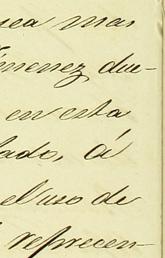 nea mas
imenez due-
en esta
lado, á
el uso de
reprecen-